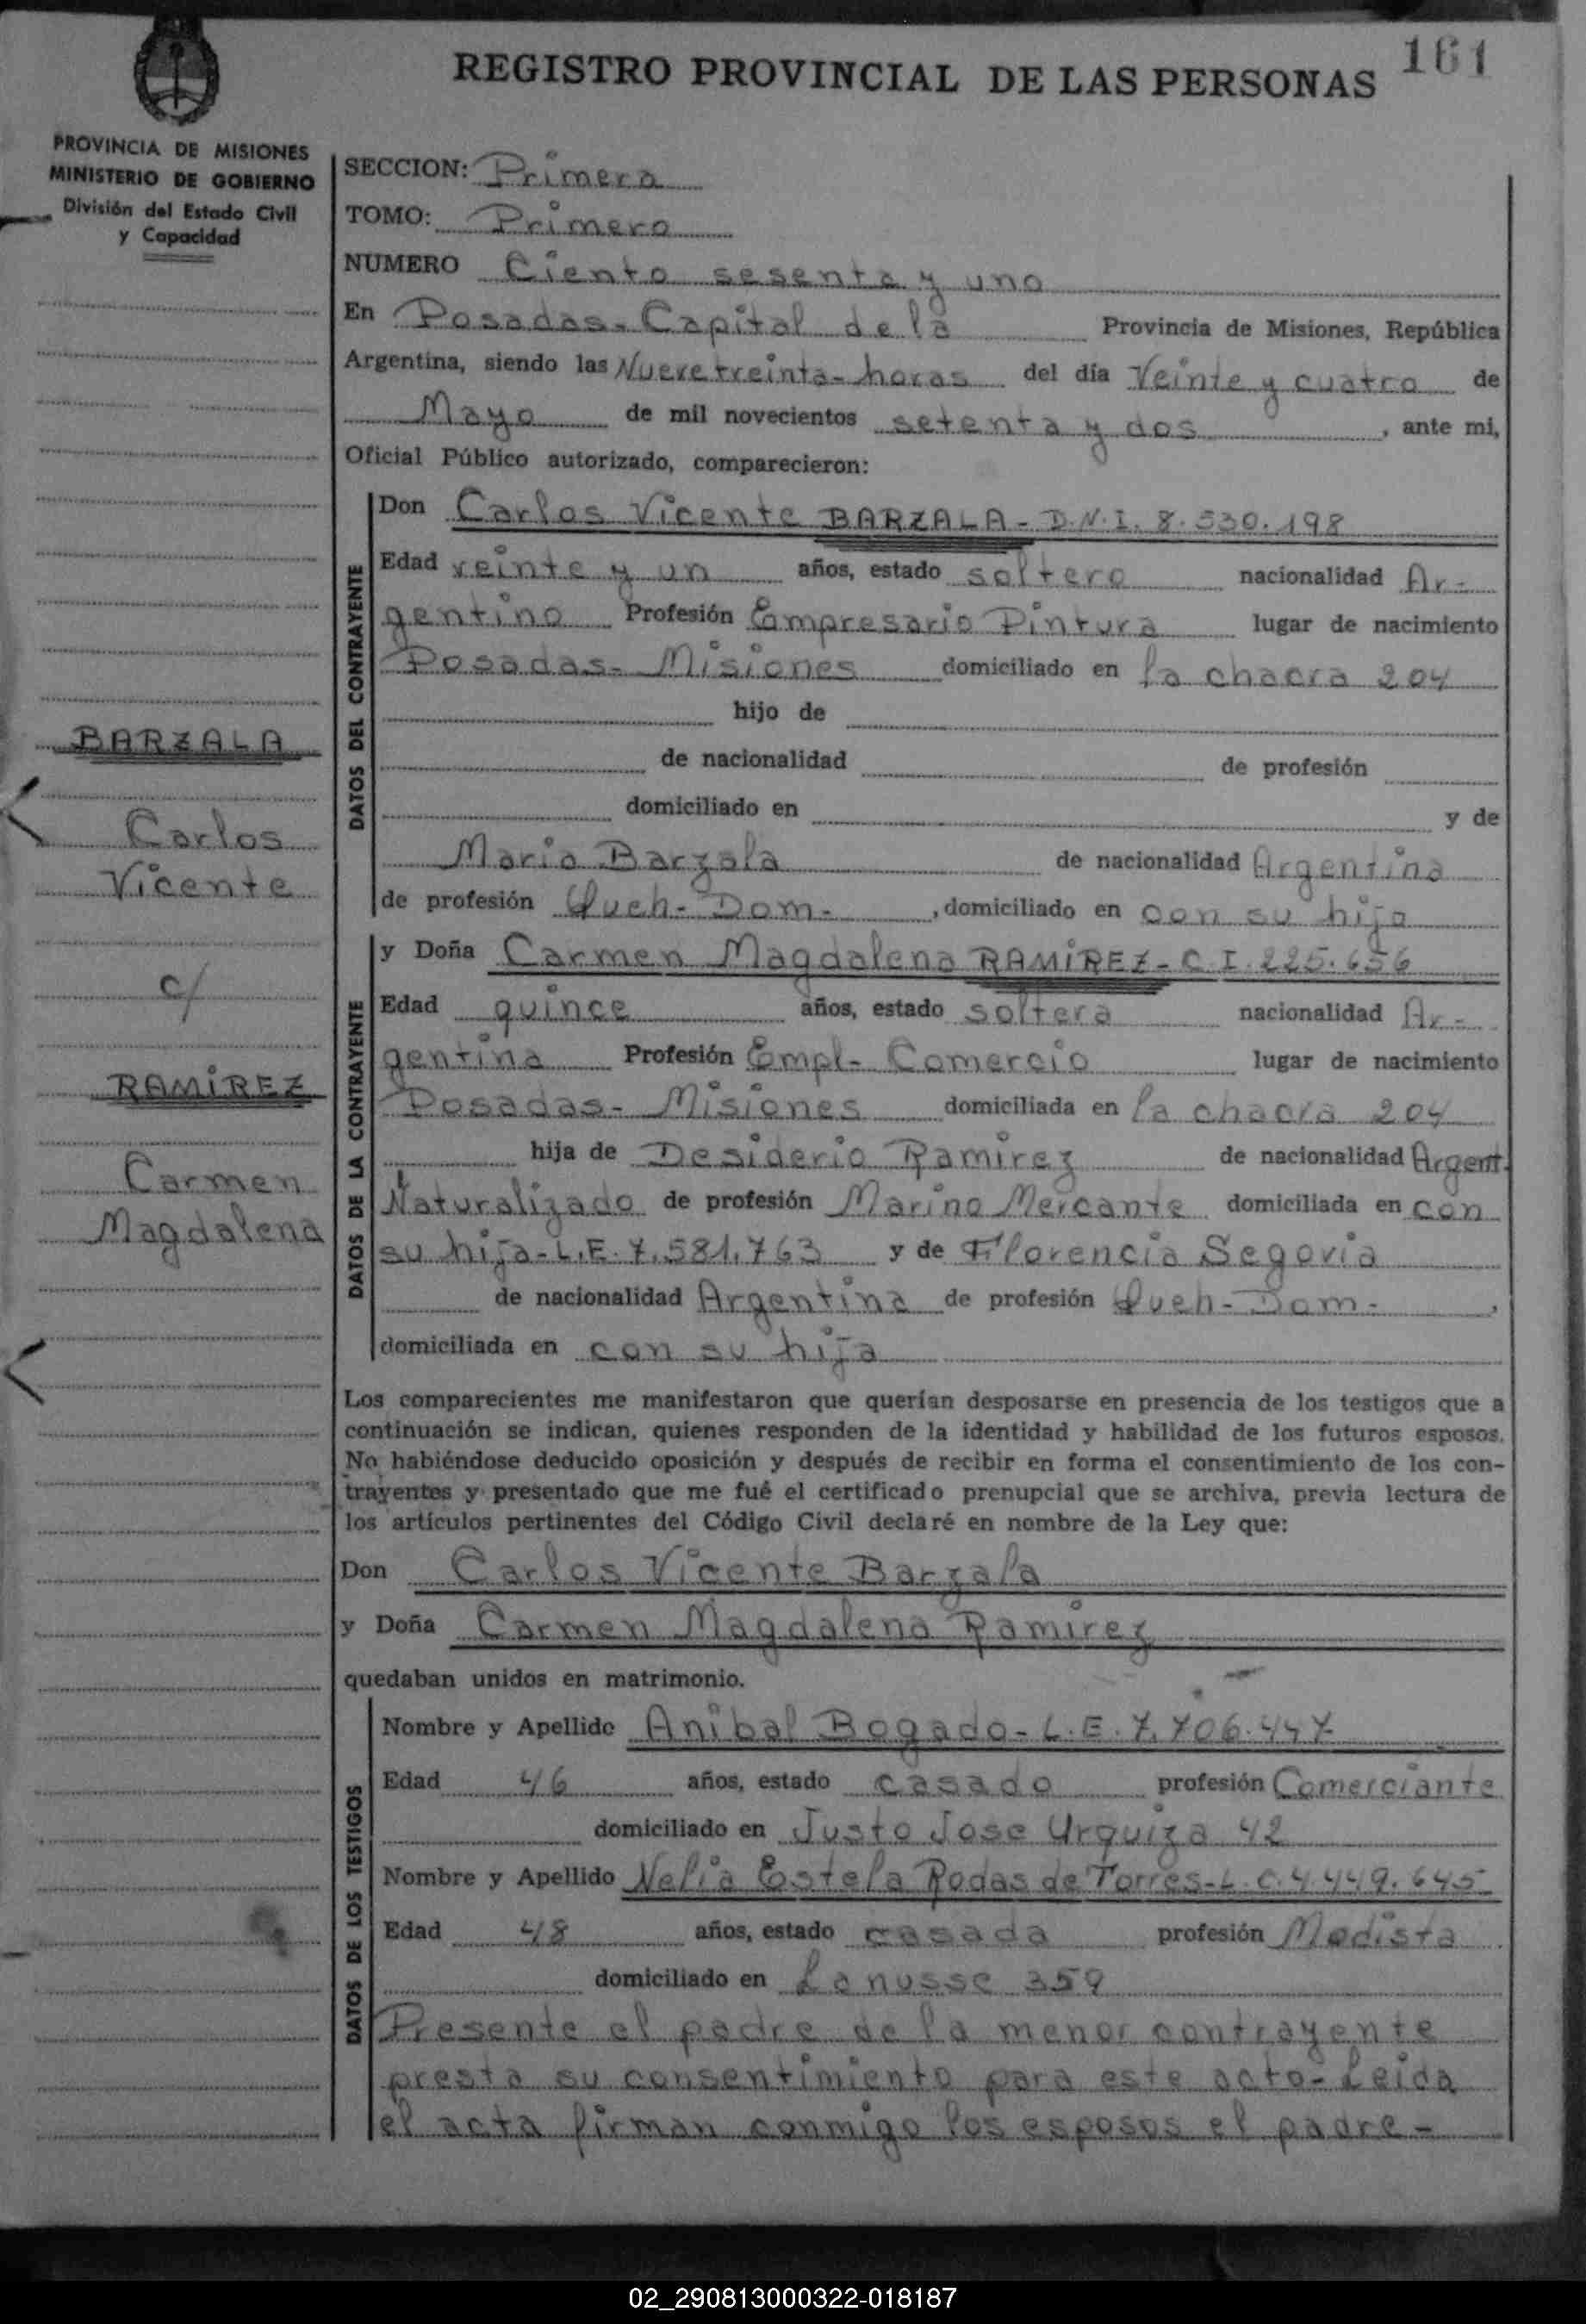 161
REGISTRO PROVINCIAL DE LAS PERSONAS
PROVINCIA DE MISIONES
MINISTERIO DE GOBIERNO
División del Estado Civil
y Capacidad
BARZALA
Carlos
Vicente
c/
RAMIREZ
Carmen
Magdalena
SECCION: Primera
TOMO: Primero
NUMERO Ciento sesenta y uno
En Posadas - Capital de la Provincia de Misiones, República
Argentina, siendo las Nueve treinta - horas del día Veinte y cuatro de
Mayo de mil novecientos setenta y dos, ante mi,
Oficial Público autorizado, comparecieron:
DATOS DEL CONTRAYENTE
Don Carlos Vicente BARZALA - D.N.I. 8.530.198
Edad veinte y un años, estado soltero nacionalidad Ar-
gentino Profesión Empresario Pintura lugar de nacimiento
Posadas - Misiones domiciliado en la chacra 204
hijo de
de nacionalidad de profesión
domiciliado en y de
Maria Barzala de nacionalidad Argentina
de profesión Queh - Dom -, domiciliado en con su hijo
DATOS DE LA CONTRAYENTE
y Doña Carmen Magdalena RAMIREZ - C.I. 225.656
Edad quince años, estado soltera nacionalidad Ar-
gentina Profesión Empl - Comercio lugar de nacimiento
Posadas - Misiones domiciliada en la chacra 204
hija de Desiderio Ramirez de nacionalidad Argent.
Naturalizado de profesión Marino Mercante domiciliada en con
su hija - L.E. 7.581.763 y de Florencia Segovia
de nacionalidad Argentina de profesión Queh - Dom -,
domiciliada en con su hija
Los comparecientes me manifestaron que querían desposarse en presencia de los testigos que a
continuación se indican, quienes responden de la identidad y habilidad de los futuros esposos.
No habiéndose deducido oposición y después de recibir en forma el consentimiento de los con-
trayentes y presentado que me fué el certificado prenupcial que se archiva, previa lectura de
los artículos pertinentes del Código Civil declaré en nombre de la Ley que:
Don Carlos Vicente Barzala
y Doña Carmen Magdalena Ramirez
quedaban unidos en matrimonio.
DATOS DE LOS TESTIGOS
Nombre y Apellido Anibal Bogado - L.E. 7.706.447
Edad 46 años, estado casado profesión Comerciante
domiciliado en Justo Jose Urquiza 42
Nombre y Apellido Nelia Estela Rodas de Torres - L.C. 4.449.645
Edad 48 años, estado casada profesión Modista
domiciliado en Lanusse 359
Presente el padre de la menor contrayente
presta su consentimiento para este acto - Leida
el acta firman conmigo los esposos el padre -
02_290813000322-018187